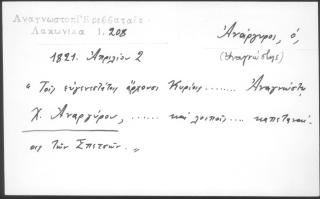 Ἀναγνωστοπ Γ Ἐρεθθαταξε
Λακωνικά 1.208
Ἀνάργυρος, ὁ,
(Ἀναγνώστης)
1821. Ἀπριλίου 2
"Τοῖς εὐγενεστάτοις ἄρχουσι Κυρίοις ....... Ἀναγνώστῃ
Χ. Ἀναργύρου, ...... καὶ λοιποῖς .... καπεταναί-
οις τῶν Σπετσῶν."